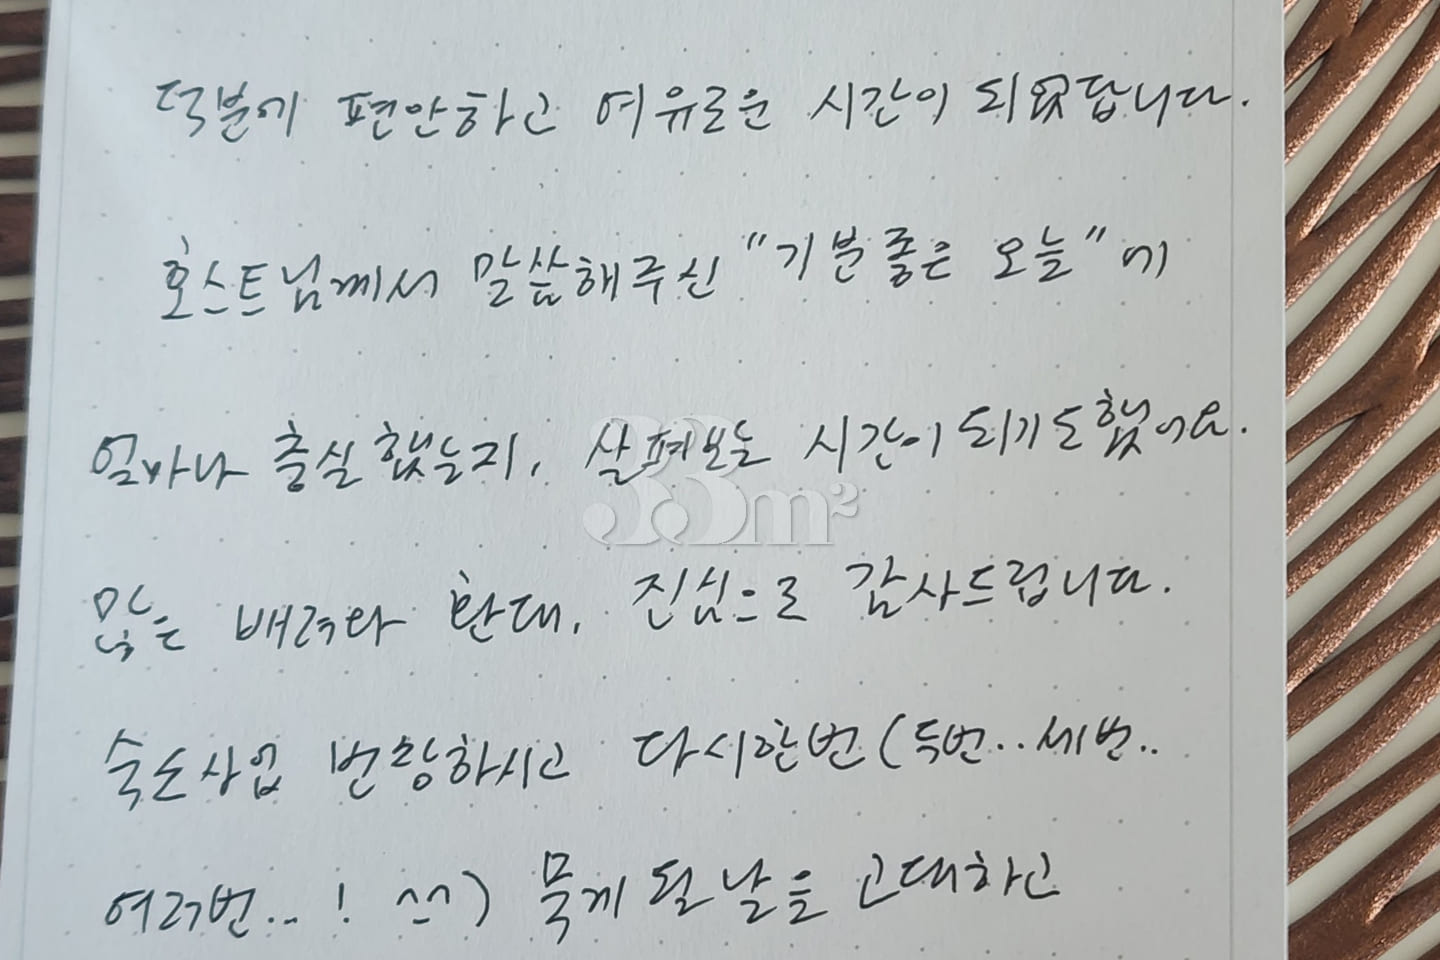 덕분에 편안하고 여유로운 시간이 되었답니다.
호스트님께서 말씀해주신 "기분좋은 오늘"에
얼마나 충실했는지, 살펴보는 시간이 되기도했어요.
많은 배려와 환대, 진심으로 감사드립니다.
숙소사업 번창하시고 다시한번 (두번.. 세번..
여러번... ! ^^) 묵게 될 날을 고대하고
33m²